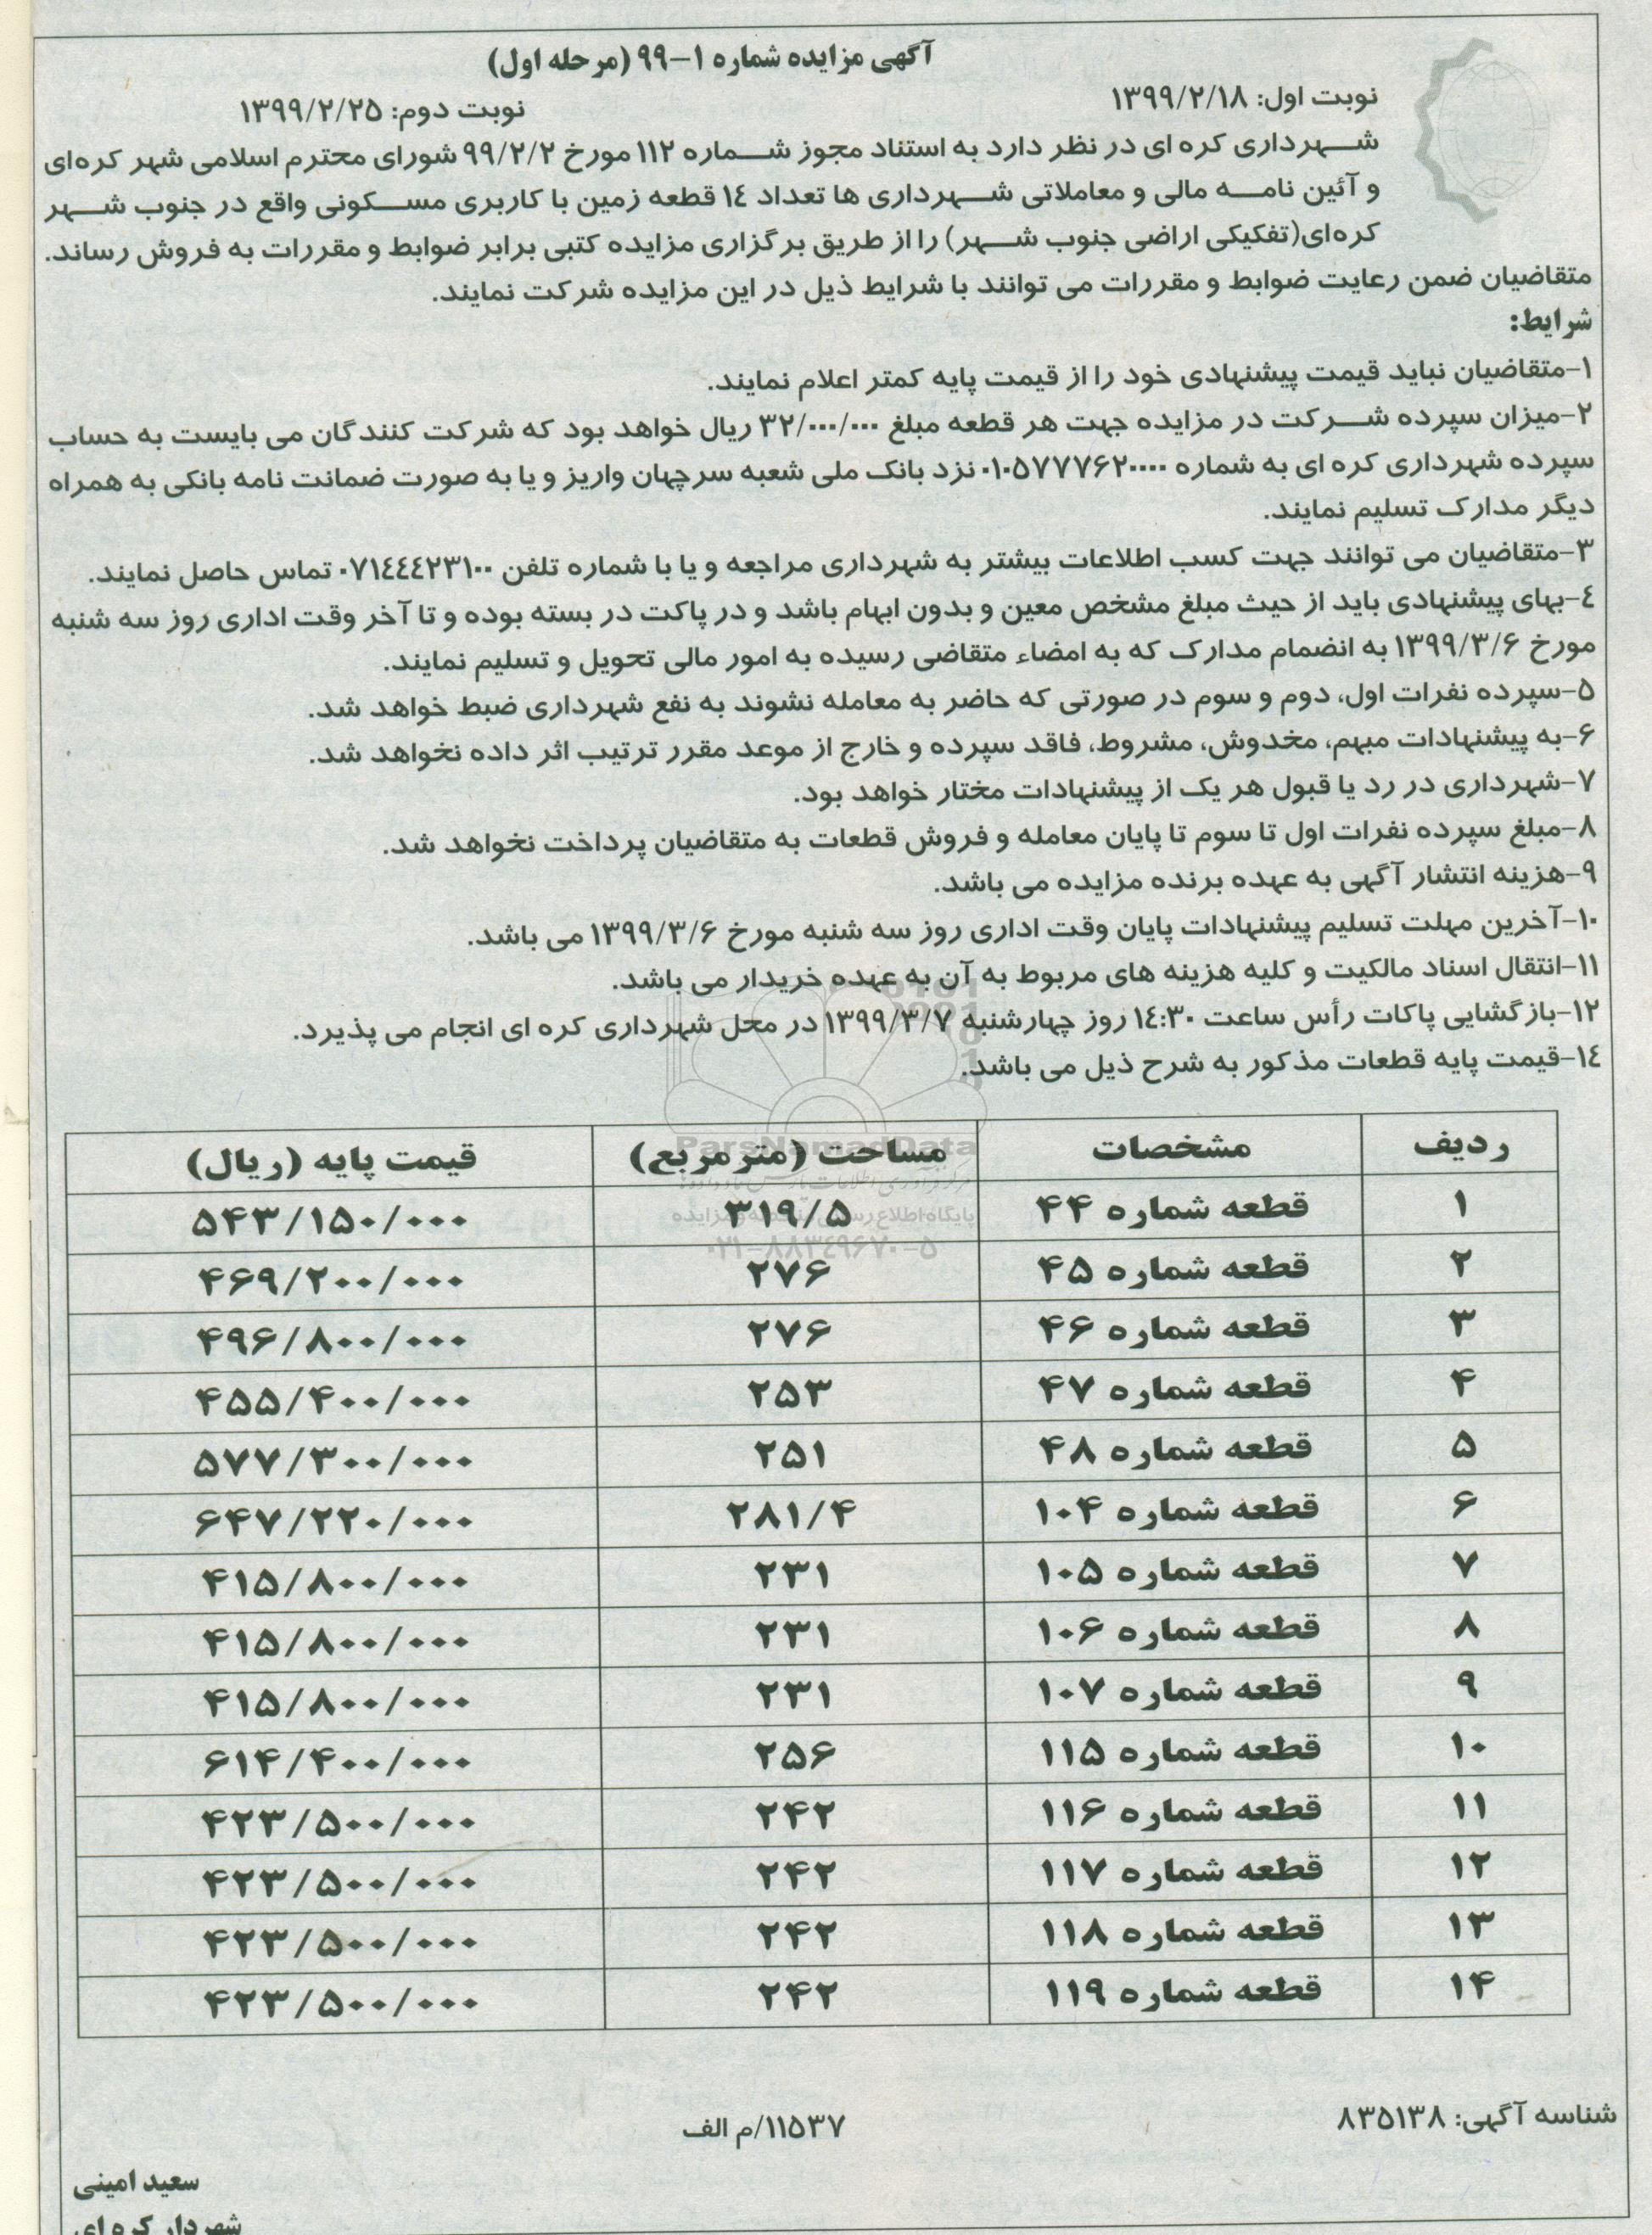 آگهی مزایده شماره ۱-۹۹ (مرحله اول)
نوبت اول: ۱۳۹۹/۲/۱۸
نوبت دوم: ۱۳۹۹/۲/۲۵
شهرداری کره ای در نظر دارد به استناد مجوز شماره ۱۱۲ مورخ ۹۹/۲/۲ شورای محترم اسلامی شهر کره‌ای
و آئین نامه مالی و معاملاتی شهرداری ها تعداد ۱٤ قطعه زمین با کاربری مسکونی واقع در جنوب شهر
کره‌ای(تفکیکی اراضی جنوب شهر) را از طریق برگزاری مزایده کتبی برابر ضوابط و مقررات به فروش رساند.
متقاضیان ضمن رعایت ضوابط و مقررات می توانند با شرایط ذیل در این مزایده شرکت نمایند.
شرایط:
۱-متقاضیان نباید قیمت پیشنهادی خود را از قیمت پایه کمتر اعلام نمایند.
۲-میزان سپرده شرکت در مزایده جهت هر قطعه مبلغ ۳۲/۰۰۰/۰۰۰ ریال خواهد بود که شرکت کنندگان می بایست به حساب
سپرده شهرداری کره ای به شماره ۰۱۰۵۷۷۷۶۲۰۰۰۰ نزد بانک ملی شعبه سرچهان واریز و یا به صورت ضمانت نامه بانکی به همراه
دیگر مدارک تسلیم نمایند.
۳-متقاضیان می توانند جهت کسب اطلاعات بیشتر به شهرداری مراجعه و یا با شماره تلفن ۰۷۱٤٤٤۲۳۱۰۰ تماس حاصل نمایند.
٤-بهای پیشنهادی باید از حیث مبلغ مشخص معین و بدون ابهام باشد و در پاکت در بسته بوده و تا آخر وقت اداری روز سه شنبه
مورخ ۱۳۹۹/۳/۶ به انضمام مدارک که به امضاء متقاضی رسیده به امور مالی تحویل و تسلیم نمایند.
۵-سپرده نفرات اول، دوم و سوم در صورتی که حاضر به معامله نشوند به نفع شهرداری ضبط خواهد شد.
۶-به پیشنهادات مبهم، مخدوش، مشروط، فاقد سپرده و خارج از موعد مقرر ترتیب اثر داده نخواهد شد.
۷-شهرداری در رد یا قبول هر یک از پیشنهادات مختار خواهد بود.
۸-مبلغ سپرده نفرات اول تا سوم تا پایان معامله و فروش قطعات به متقاضیان پرداخت نخواهد شد.
۹-هزینه انتشار آگهی به عهده برنده مزایده می باشد.
۱۰-آخرین مهلت تسلیم پیشنهادات پایان وقت اداری روز سه شنبه مورخ ۱۳۹۹/۳/۶ می باشد.
۱۱-انتقال اسناد مالکیت و کلیه هزینه های مربوط به آن به عهده خریدار می باشد.
۱۲-بازگشایی پاکات رأس ساعت ۱٤:۳۰ روز چهارشنبه ۱۳۹۹/۳/۷ در محل شهرداری کره ای انجام می پذیرد.
۱٤-قیمت پایه قطعات مذکور به شرح ذیل می باشد.
ParsNamadData
۰۲۱-۸۸۳٤۹۶۷۰-۵
ردیف مشخصات مساحت (متر مربع) قیمت پایه (ریال)
۱ قطعه شماره ۴۴ ۳۱۹/۵ ۵۴۳/۱۵۰/۰۰۰
۲ قطعه شماره ۴۵ ۲۷۶ ۴۶۹/۲۰۰/۰۰۰
۳ قطعه شماره ۴۶ ۲۷۶ ۴۹۶/۸۰۰/۰۰۰
۴ قطعه شماره ۴۷ ۲۵۳ ۴۵۵/۴۰۰/۰۰۰
۵ قطعه شماره ۴۸ ۲۵۱ ۵۷۷/۳۰۰/۰۰۰
۶ قطعه شماره ۱۰۴ ۲۸۱/۴ ۶۴۷/۲۲۰/۰۰۰
۷ قطعه شماره ۱۰۵ ۲۳۱ ۴۱۵/۸۰۰/۰۰۰
۸ قطعه شماره ۱۰۶ ۲۳۱ ۴۱۵/۸۰۰/۰۰۰
۹ قطعه شماره ۱۰۷ ۲۳۱ ۴۱۵/۸۰۰/۰۰۰
۱۰ قطعه شماره ۱۱۵ ۲۵۶ ۶۱۴/۴۰۰/۰۰۰
۱۱ قطعه شماره ۱۱۶ ۲۴۲ ۴۲۳/۵۰۰/۰۰۰
۱۲ قطعه شماره ۱۱۷ ۲۴۲ ۴۲۳/۵۰۰/۰۰۰
۱۳ قطعه شماره ۱۱۸ ۲۴۲ ۴۲۳/۵۰۰/۰۰۰
۱۴ قطعه شماره ۱۱۹ ۲۴۲ ۴۲۳/۵۰۰/۰۰۰
شناسه آگهی: ۸۳۵۱۳۸
۱۱۵۳۷/م الف
سعید امینی
شهردار کره ای